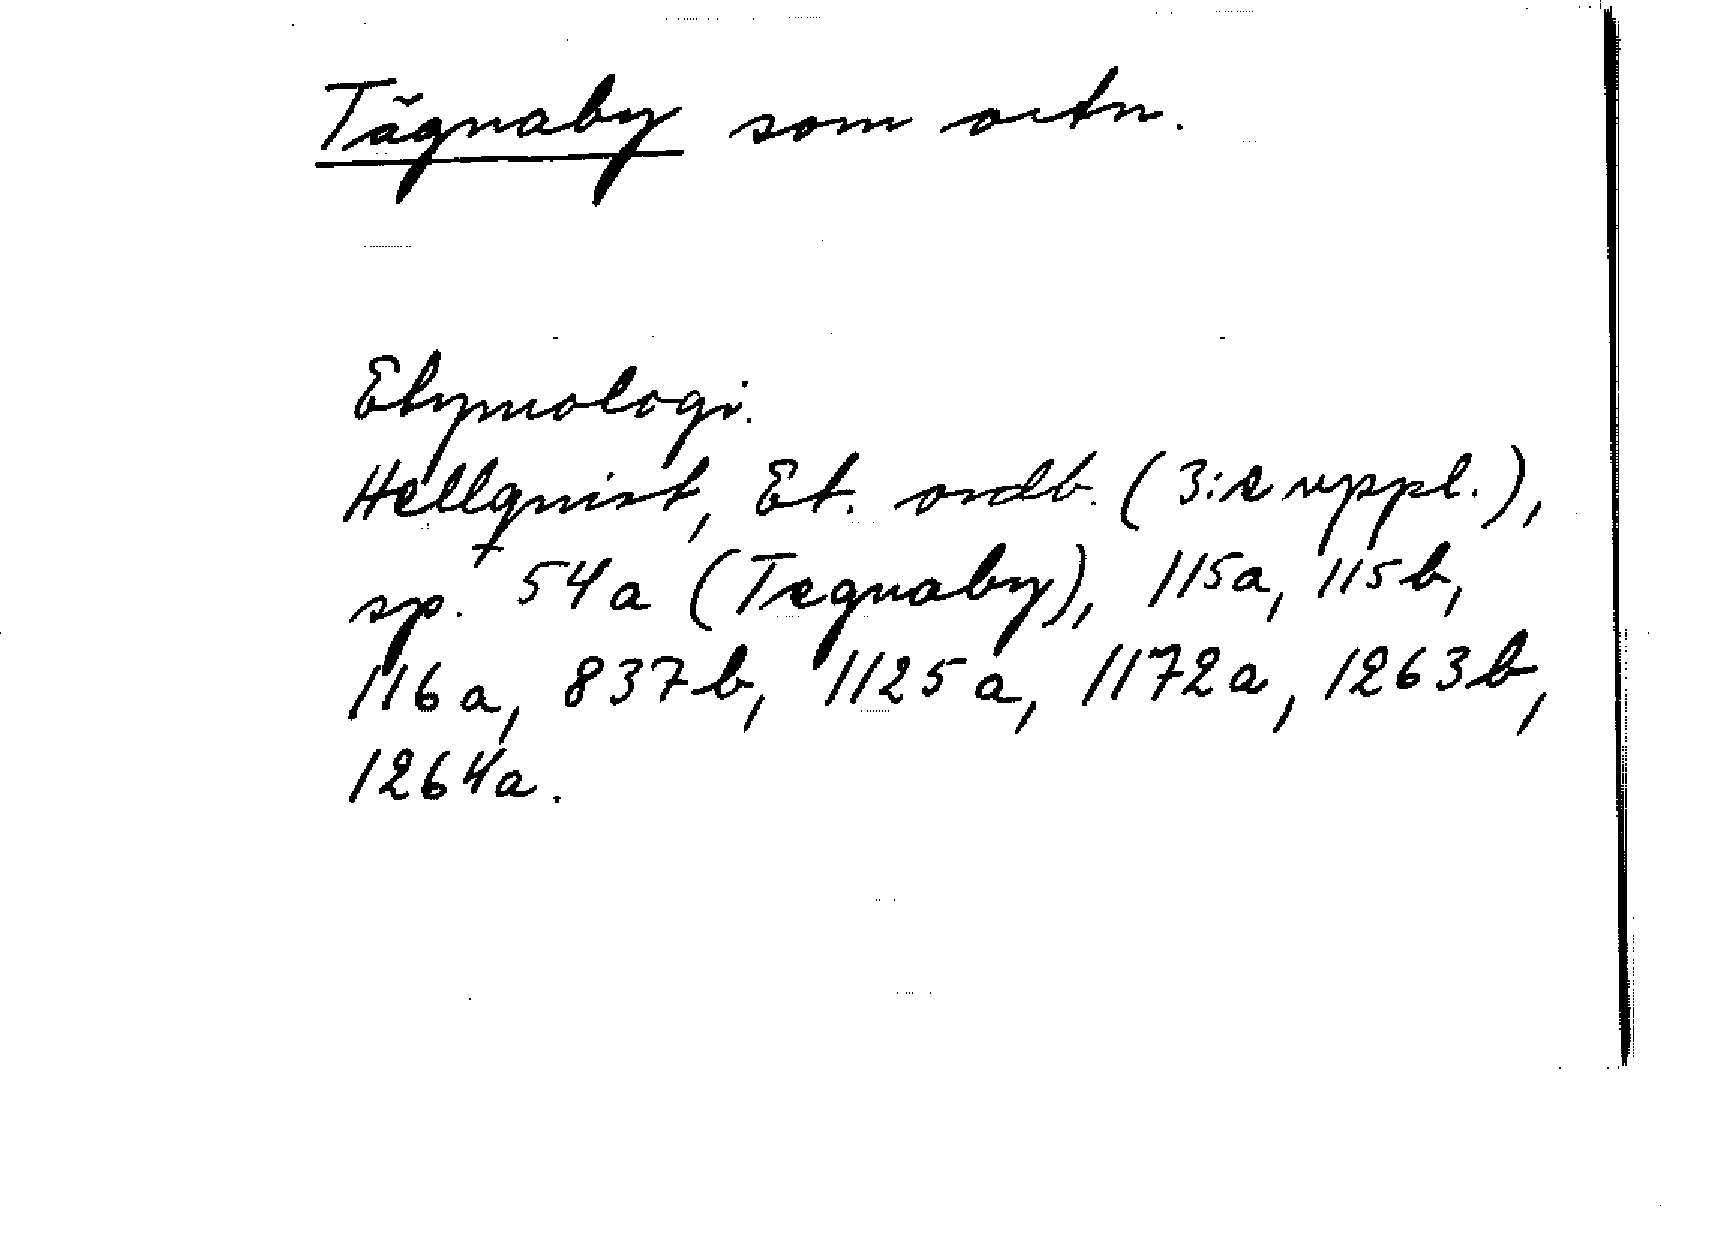 Tägnaby som ortn.
Etymologi.
Hellquist, Et. ordb. (3:e uppl.),
sp. 54a (Tegnaby), 115a, 115b,
116a, 837b, 1125a, 1172a, 1263b,
1264a.